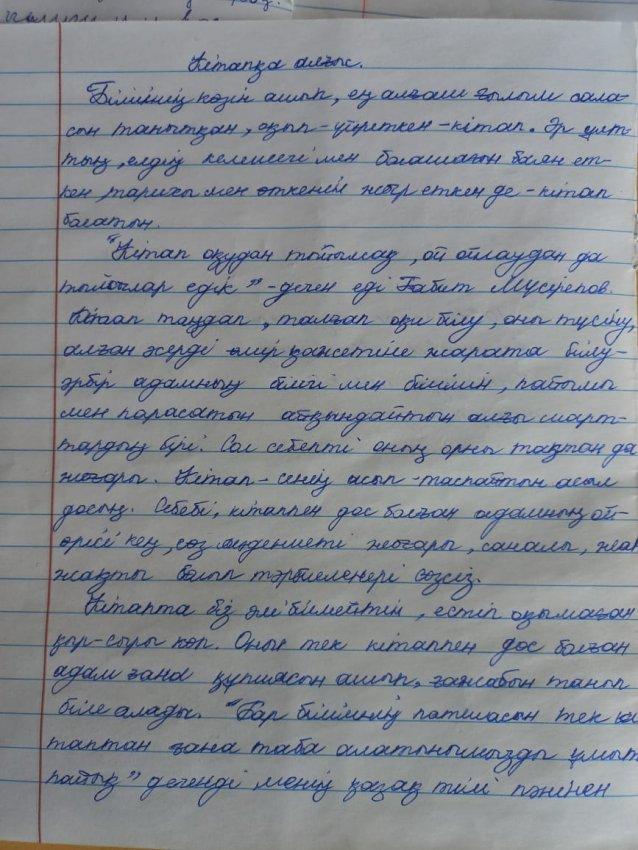 Кітапқа алғыс.
Білімнің көзін ашып, ең алғаш ғылым сала-
сын танытқан, оқып-үйреткен-кітап. Әр ұлт-
тың, елдің келешегі мен болашағын баян ет-
кен, тарихы мен өткенін жыр еткен де - кітап
болатын.
"Кітап оқудан тыйылсақ, ой ойлаудан да
тыйылар едік" - деген еді Ғабит Мүсірепов.
Кітап таңдап, талғап оқи білу, оны түсіну,
алған әсерді өмір қажетіне жарата білу-
әрбір адамның білігі мен білімін, пайымы
мен парасатын айқындайтын алғы шарт-
тардың бірі. Сол себепті оның орны тақтан да
жоғары. Кітап - сенің асып-таспайтын асыл
досың. Себебі, кітаппен дос болған адамның ой-
өрісі кең, сөз мәдениеті жоғары, саналы, жан
жақты болып тәрбиеленері сөзсіз.
Кітапта біз әлі білмейтін, естіп оқымаған
қыр-сыры көп. Оның тек кітаппен дос болған
адам ғана құпиясын ашып, ғажабын танып
біле алады. "Бар білімнің патшасын тек кі
таптан ғана таба алатынымызды ұмыт
пайық" дегенді менің қазақ тілі пәнінен